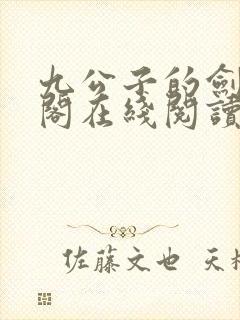 九公子的劍
閣在綫閱讀
佐藤文也 天